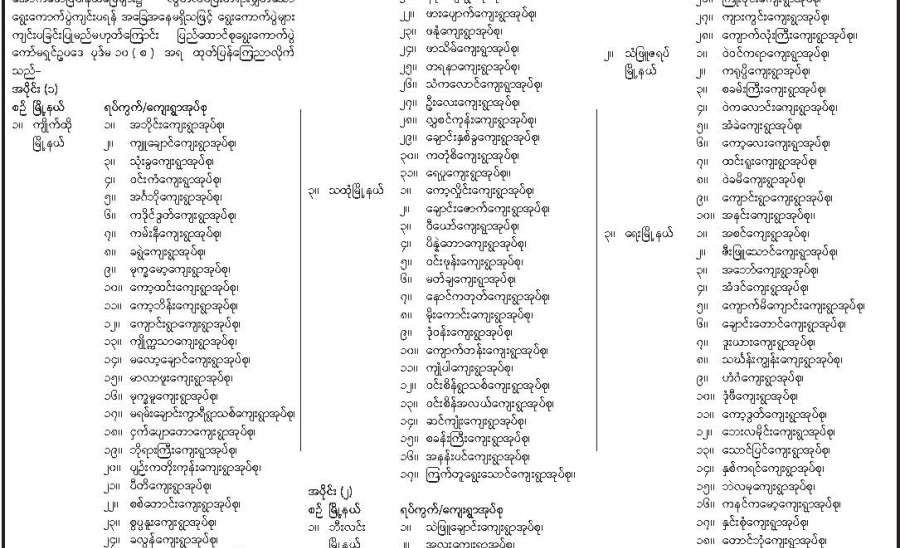 ရွေးကောက်ပွဲကျင်းပရန် အခြေအနေမရှိသဖြင့် ရွေးကောက်ပွဲများ
ကျင်းပခြင်းပြုမည်မဟုတ်ကြောင်း ပြည်ထောင်စုရွေးကောက်ပွဲ
ကော်မရှင်ဥပဒေ ပုဒ်မ ၁၀ ( စ ) အရ ထုတ်ပြန်ကြေညာလိုက်
သည်–
အပိုင်း (၁)
စဉ် မြို့နယ် ရပ်ကွက်/ကျေးရွာအုပ်စု
၁။ ကျိုက်ထို
မြို့နယ်
၁။ အဘိုင်းကျေးရွာအုပ်စု၊
၂။ ကျူချောင်ကျေးရွာအုပ်စု၊
၃။ သုံးခွကျေးရွာအုပ်စု၊
၄။ ဝင်းကံကျေးရွာအုပ်စု၊
၅။ အင်္ဂဘိုကျေးရွာအုပ်စု၊
၆။ ကဒိုင်ဒွတ်ကျေးရွာအုပ်စု၊
၇။ ကမ်းနီကျေးရွာအုပ်စု၊
၈။ ခရွဲကျေးရွာအုပ်စု၊
၉။ မုက္ခမော့ကျေးရွာအုပ်စု၊
၁၀။ ကော့ထင်းကျေးရွာအုပ်စု၊
၁၁။ ကော့ဘိန်းကျေးရွာအုပ်စု၊
၁၂။ ကျောင်းရွာကျေးရွာအုပ်စု၊
၁၃။ ကျိုက္ကသာကျေးရွာအုပ်စု၊
၁၄။ မလော့ချောင်ကျေးရွာအုပ်စု၊
၁၅။ မာလာဖူးကျေးရွာအုပ်စု၊
၁၆။ မုက္ခမူကျေးရွာအုပ်စု၊
၁၇။ မရမ်းချောင်းကွာရီရွာသစ်ကျေးရွာအုပ်စု၊
၁၈။ ငှက်ပျောတောကျေးရွာအုပ်စု၊
၁၉။ ဘိုရားကြီးကျေးရွာအုပ်စု၊
၂၀။ ပျဉ်းကတိုးကုန်းကျေးရွာအုပ်စု၊
၂၁။ ပီတိကျေးရွာအုပ်စု၊
၂၂။ စစ်တောင်းကျေးရွာအုပ်စု၊
၂၃။ စွပ္ပနူးကျေးရွာအုပ်စု၊
၂၄။ ခလွန်ကျေးရွာအုပ်စု၊
၂၂။ ဖားပျောက်ကျေးရွာအုပ်စု၊
၂၃။ ဖနုံကျေးရွာအုပ်စု၊
၂၄။ ဖာသိမ်ကျေးရွာအုပ်စု၊
၂၅။ တရနာကျေးရွာအုပ်စု၊
၂၆။ သံကလောင်ကျေးရွာအုပ်စု၊
၂၇။ ဦးလေးကျေးရွာအုပ်စု၊
၂၈။ လွှစင်ကုန်းကျေးရွာအုပ်စု၊
၂၉။ ချောင်းနှစ်ခွကျေးရွာအုပ်စု၊
၃၀။ ကတုံစိကျေးရွာအုပ်စု၊
၃၁။ ရေပူကျေးရွာအုပ်စု။
၃။ သထုံမြို့နယ်
၁။ ကော့လှိုင်းကျေးရွာအုပ်စု၊
၂။ ချောင်းဇောက်ကျေးရွာအုပ်စု၊
၃။ ဝီယော်ကျေးရွာအုပ်စု၊
၄။ ပိန္နဲတောကျေးရွာအုပ်စု၊
၅။ ဝင်းဖုန်းကျေးရွာအုပ်စု၊
၆။ မတ်ချကျေးရွာအုပ်စု၊
၇။ နောင်ကတုတ်ကျေးရွာအုပ်စု၊
၈။ မိုးကောင်းကျေးရွာအုပ်စု၊
၉။ ဒုံဝန်းကျေးရွာအုပ်စု၊
၁၀။ ကျောက်တန်းကျေးရွာအုပ်စု၊
၁၁။ ကျုံပါကျေးရွာအုပ်စု၊
၁၂။ ဝင်းစိန်ရွာသစ်ကျေးရွာအုပ်စု၊
၁၃။ ဝင်းစိန်အလယ်ကျေးရွာအုပ်စု၊
၁၄။ ဆင်ကျုံးကျေးရွာအုပ်စု၊
၁၅။ စခန်းကြီးကျေးရွာအုပ်စု၊
၁၆။ အနန်းပင်ကျေးရွာအုပ်စု၊
၁၇။ ကြက်တူရွေးသောင်ကျေးရွာအုပ်စု။
အပိုင်း (၂)
စဉ် မြို့နယ် ရပ်ကွက်/ကျေးရွာအုပ်စု
၁။ ဘီးလင်း
မြို့နယ်
၁။ သဲဖြူချောင်းကျေးရွာအုပ်စု၊
၂။ အလူးကျေးရွာအုပ်စု၊
၂၇။ ကျားကွင်းကျေးရွာအုပ်စု၊
၂၈။ ကျောက်လုံးကြီးကျေးရွာအုပ်စု။
၂။ သံဖြူဇရပ်
မြို့နယ်
၁။ ဝဲဝင်ကရာကျေးရွာအုပ်စု၊
၂။ ကရုပ္ပိကျေးရွာအုပ်စု၊
၃။ စခမ်းကြီးကျေးရွာအုပ်စု၊
၄။ ဝဲကလောင်းကျေးရွာအုပ်စု၊
၅။ အံခဲကျေးရွာအုပ်စု၊
၆။ ကော့လေးကျေးရွာအုပ်စု၊
၇။ ထင်းရူးကျေးရွာအုပ်စု၊
၈။ ဝဲခမိကျေးရွာအုပ်စု၊
၉။ ကျောင်းရွာကျေးရွာအုပ်စု၊
၁၀။ အနင်းကျေးရွာအုပ်စု။
၃။ ရေးမြို့နယ်
၁။ အစင်ကျေးရွာအုပ်စု၊
၂။ ဇီးဖြူသောင်ကျေးရွာအုပ်စု၊
၃။ အဘော်ကျေးရွာအုပ်စု၊
၄။ အံဒင်ကျေးရွာအုပ်စု၊
၅။ ကျောက်မိကျောင်းကျေးရွာအုပ်စု၊
၆။ ချောင်းတောင်ကျေးရွာအုပ်စု၊
၇။ ဒူးယားကျေးရွာအုပ်စု၊
၈။ သင်္ဃန်းကျွန်းကျေးရွာအုပ်စု၊
၉။ ဟံဂံကျေးရွာအုပ်စု၊
၁၀။ ဒုံဖီကျေးရွာအုပ်စု၊
၁၁။ ကော့ဒွတ်ကျေးရွာအုပ်စု၊
၁၂။ ဘေးလမိုင်းကျေးရွာအုပ်စု၊
၁၃။ သောင်ပြင်ကျေးရွာအုပ်စု၊
၁၄။ နှစ်ကရင်ကျေးရွာအုပ်စု၊
၁၅။ ဘဲလမုကျေးရွာအုပ်စု၊
၁၆။ ကနင်ကမော့ကျေးရွာအုပ်စု၊
၁၇။ နှင်းစုံကျေးရွာအုပ်စု၊
၁၈။ တောင်ဘုံကျေးရွာအုပ်စု၊